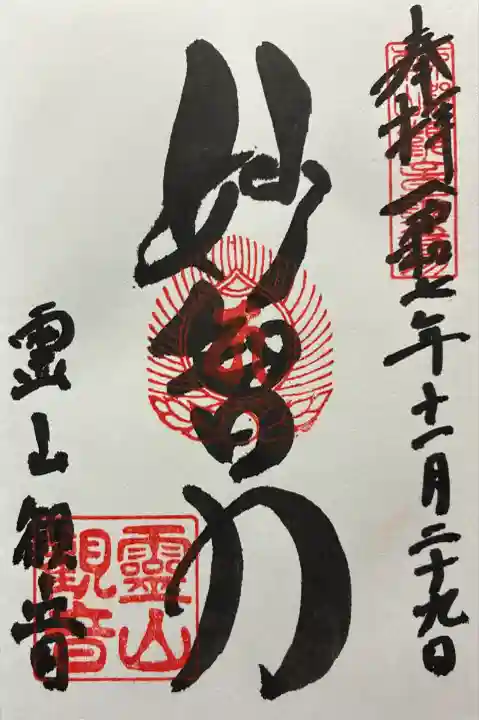 奉拝 令和七年十一月二十九日
妙智力
霊山観音
靈山
觀音